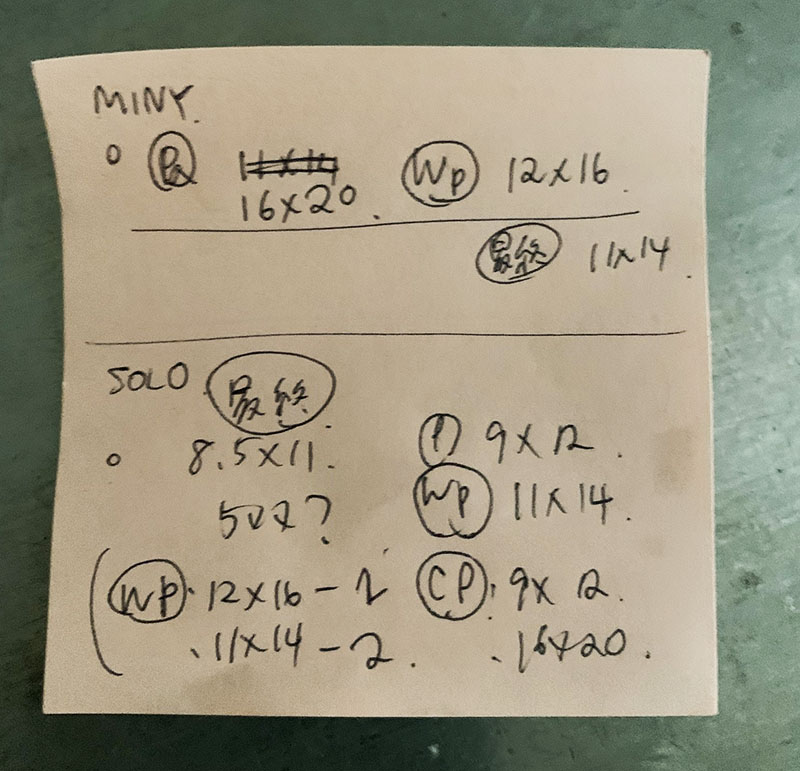 MINY.
Pa 11x14 Wp 12x16.
16x20.
最終 11x14.
SOLO 最終
8.5x11. P 9x12.
5x7? Wp 11x14.
(Wp ・12x16-2 CP ・9x12.
・11x14-2. ・16x20.